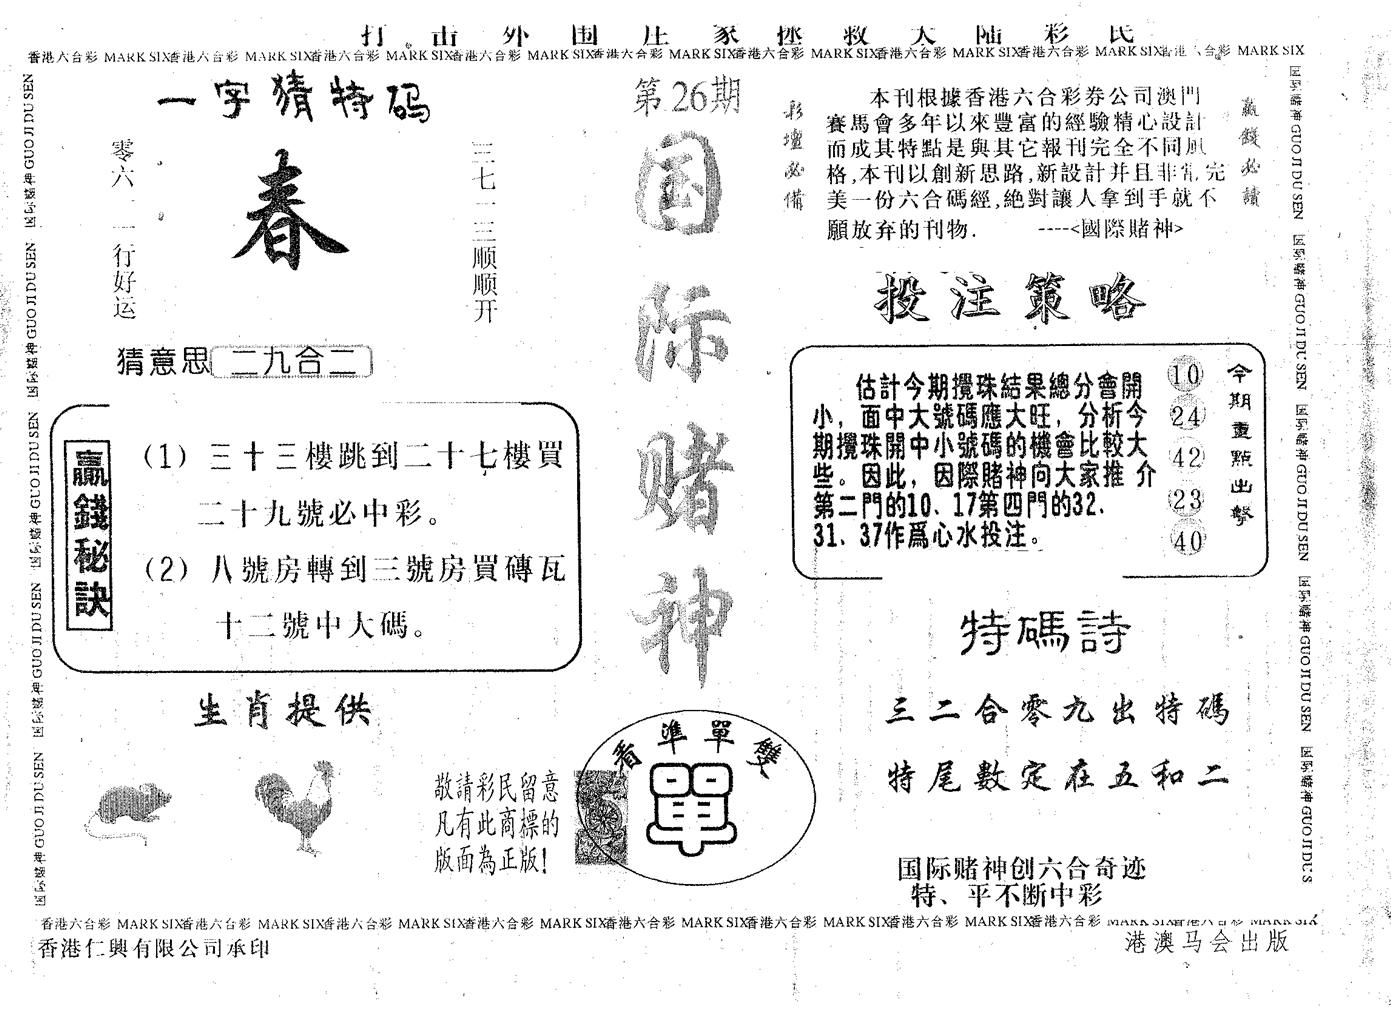 打击外围庄家拯救大陆彩民
香港六合彩 MARK SIX香港六合彩 MARK SIX香港六合彩 MARK SIX香港六合彩 MARK SIX香港六合彩 MARK SIX香港六合彩 MARK SIX香港六合彩 MARK SIX香港六合彩 MARK SIX香港六合彩 MARK SIX
一字猜特码
零六一一行好运
春
三七一三顺顺开
猜意思 二九合二
贏錢秘訣
(1) 三十三樓跳到二十七樓買
二十九號必中彩。
(2) 八號房轉到三號房買磚瓦
十二號中大碼。
生肖提供
敬請彩民留意
凡有此商標的
版面為正版!
第26期
国际赌神
看準單雙
單
彩壇必備
本刊根據香港六合彩券公司澳門
賽馬會多年以來豐富的經驗精心設計
而成其特點是與其它報刊完全不同風
格,本刊以創新思路,新設計并且非常完
美一份六合碼經,絕對讓人拿到手就不
願放弃的刊物.    ----<國際賭神>
贏錢必讀
投注策略
估計今期攪珠結果總分會開
小，面中大號碼應大旺，分析今
期攪珠開中小號碼的機會比較大
些。因此，因際賭神向大家推 介
第二門的10、17第四門的32.
31、37作爲心水投注。
10
24
42
23
40
今期重點出擊
特碼詩
三二合零九出特碼
特尾數定在五和二
国际赌神创六合奇迹
特、平不断中彩
国际赌神 GUO JI DU SEN 国际赌神 GUO JI DU SEN 国际赌神 GUO JI DU SEN 国际赌神 GUO JI DU SEN 国际赌神 GUO JI DU SEN
国际赌神 GUO JI DU SEN 国际赌神 GUO JI DU SEN 国际赌神 GUO JI DU SEN 国际赌神 GUO JI DU SEN 国际赌神 GUO JI DU'S
香港六合彩 MARK SIX香港六合彩 MARK SIX香港六合彩 MARK SIX香港六合彩 MARK SIX香港六合彩 MARK SIX香港六合彩 MARK SIX香港六合彩 MARK SIX香港六合彩 MARK SIX香港六合彩 MARK SIX
香港仁興有限公司承印
港澳马会出版